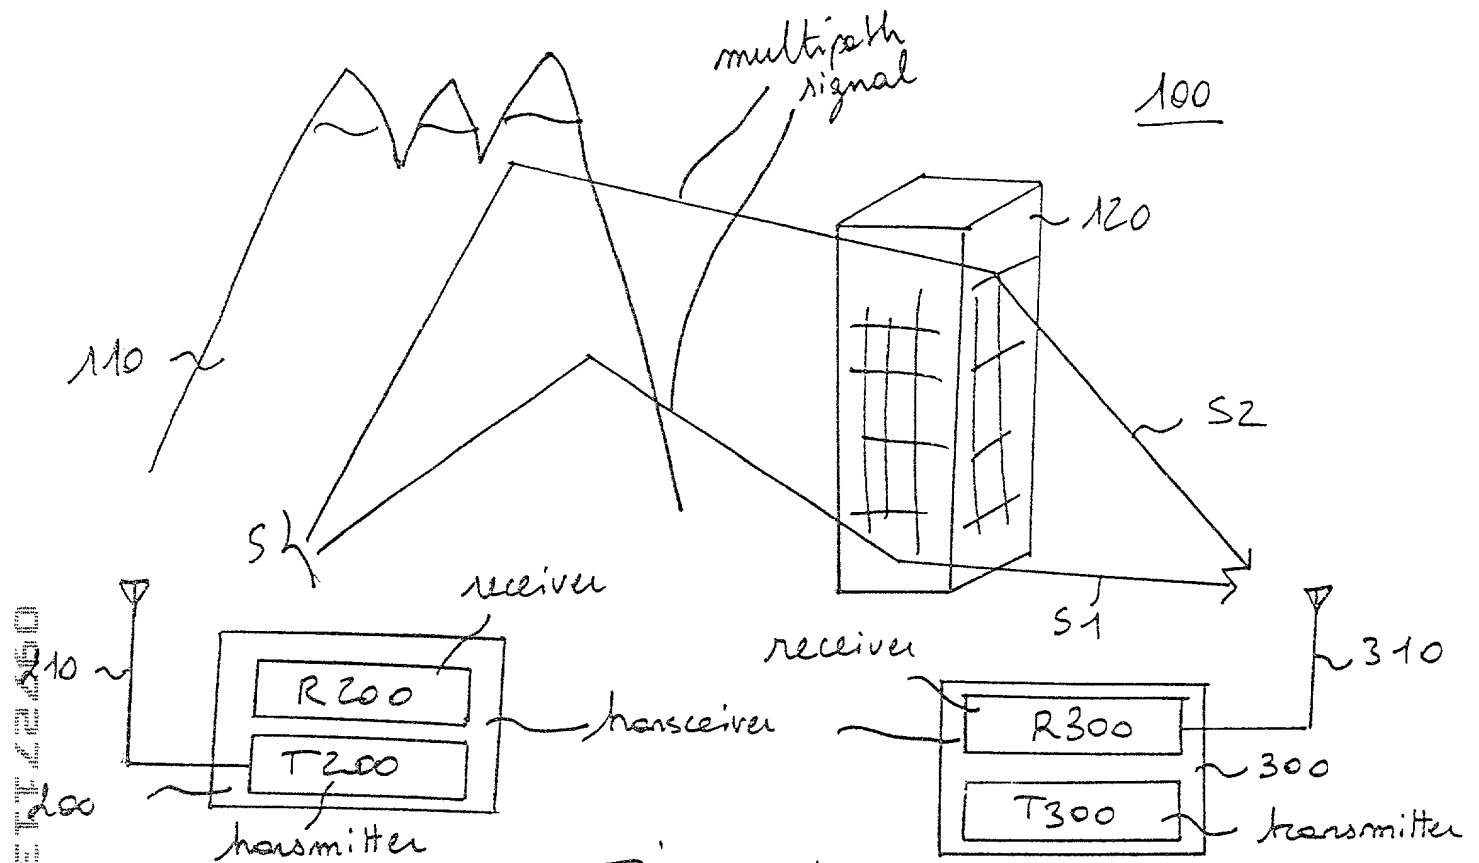 multipath
signal
100
120
110
S2
S
receiver
S1
receiver
210
310
R200
R300
transceiver
T200
300
200
T300
transmitter
transmitter